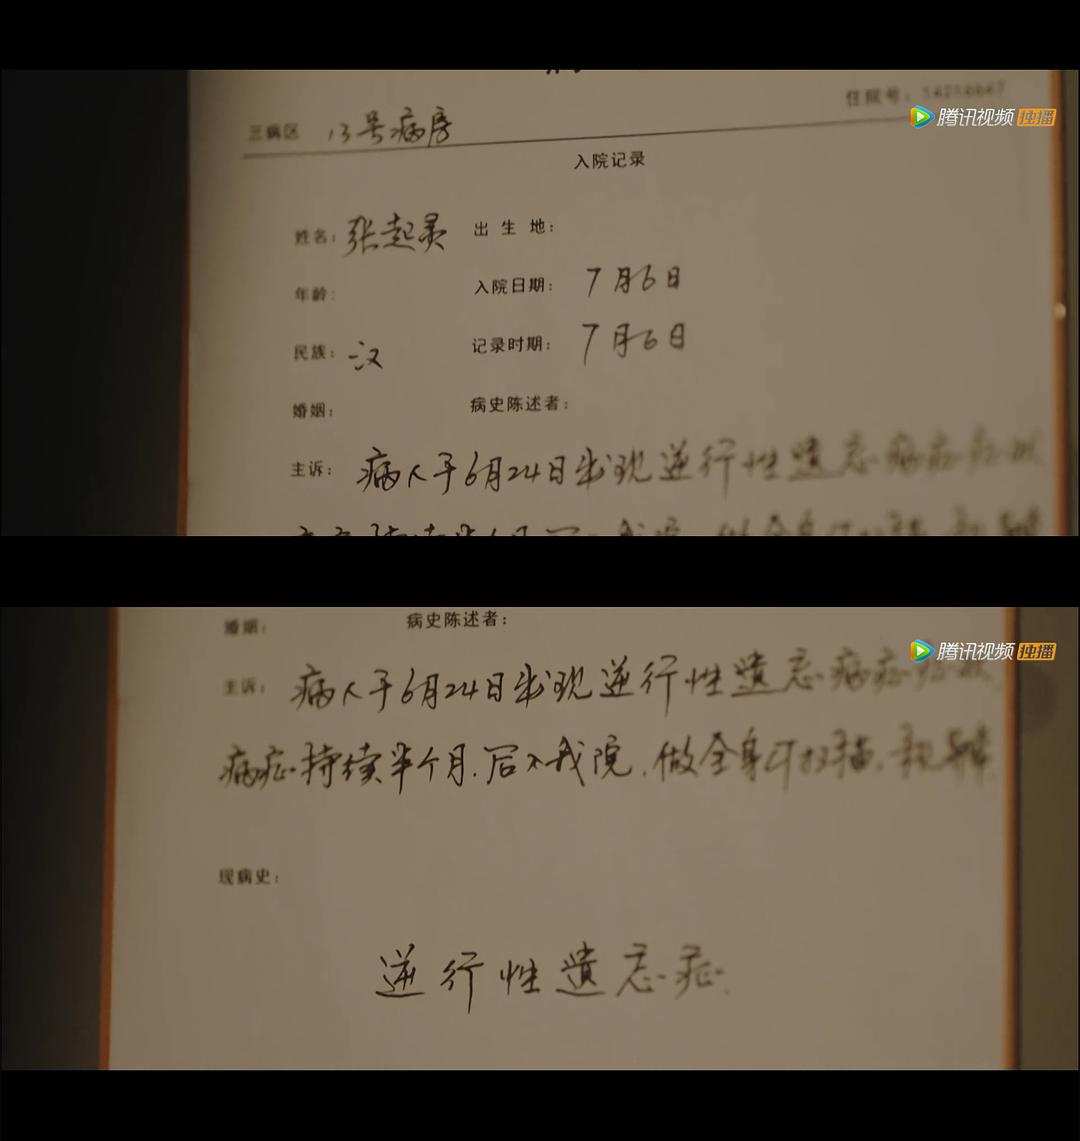 住院号：
腾讯视频 独播
三病区 13号病房
入院记录
姓名：张起灵 出生地：
年龄： 入院日期：7月6日
民族：汉 记录时期：7月6日
婚姻： 病史陈述者：
主诉：病人于6月24日出现逆行性遗忘病症症状
婚姻： 病史陈述者：
腾讯视频 独播
主诉：病人于6月24日出现逆行性遗忘病症症状
病症持续半个月.后入我院.做全身CT扫描.
现病史：
逆行性遗忘症.